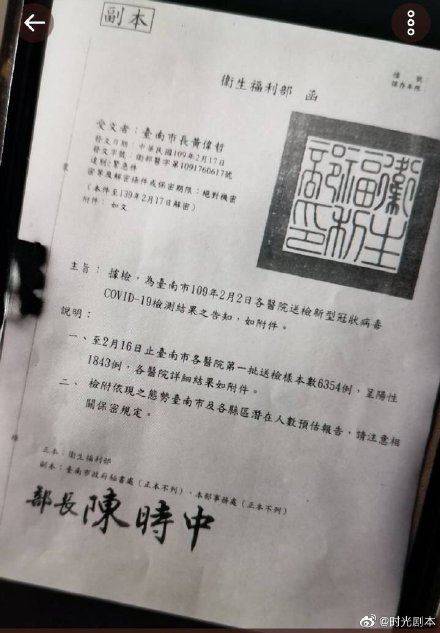 副本
檔號
保存年限
衛生福利部 函
受文者:臺南市長黃偉哲
發文日期:中華民國109年2月17日
發文字號:衛部醫字第1091760617號
速別:緊急件
密等及解密條件或保密期限:絕對機密
(本件至139年2月17日解密)
附件: 如文
主旨: 據檢,為臺南市109年2月2日各醫院送檢新型冠狀病毒
COVID-19檢測結果之告知,如附件。
說明:
一、至2月16日止臺南市各醫院第一批送檢樣本數6354例,呈陽性
1843例,各醫院詳細結果如附件。
二、檢附依現之態勢臺南市及各縣區潛在人數預估報告,請注意相
關保密規定。
正本:衛生福利部
副本:臺南市政府秘書處(正本不列)、本部事務處(正本不列)
部長陳時中
@时光剧本